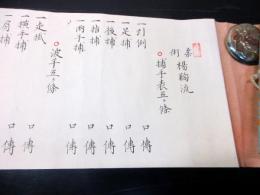 柔術 楊胸流
捕手表五ヶ條
一引倒 口傳
一足捕 口傳
一後捕 口傳
一指捕 口傳
一両手捕 口傳
波手五ヶ條
一走掛 口傳
一横手捕 口傳
一肩捕 口傳